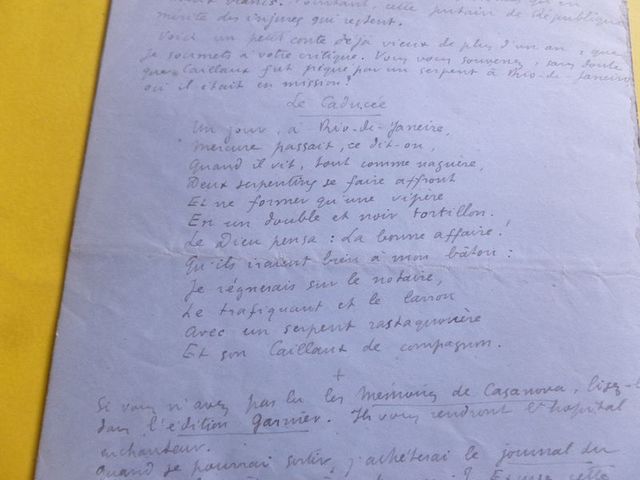 Pourtant, cette putain de République
mérite des injures qui restent.
Voici un petit conte déjà vieux de plus d'un an, que
je soumets à votre critique. Vous vous souvenez, sans doute
que Caillaux fut piqué par un serpent à Rio-de-Janeiro
où il était en mission!
Le Caducée
Un jour, à Rio-de-Janeire,
Mercure passait, ce dit-on,
Quand il vit, tout comme naguère,
Deux serpentins se faire affront
Et ne former qu'une vipère
En un double et noir tortillon.
Le Dieu pensa : La bonne affaire!
Qu'ils iraient bien à mon bâton :
Je régnerais sur le notaire,
Le trafiquant et le larron
Avec un serpent rastaquouère
Et son Caillaux de compagnon.
+
Si vous n'avez pas lu les Mémoires de Casanova, lisez-
dans l'édition Garnier. Ils vous rendront l'hôpital
enchanteur.
Quand je pourrai sortir, j'achèterai le journal du
? Et